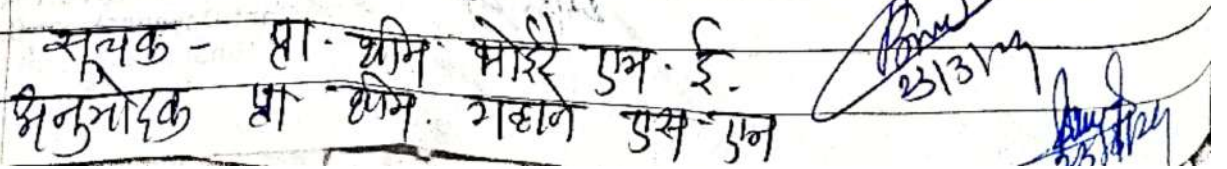 सूचक - प्रा. श्रीम. भोईरे एम. ई.
अनुमोदक प्रा श्रीम. गव्हाने एस. एन
23/3/